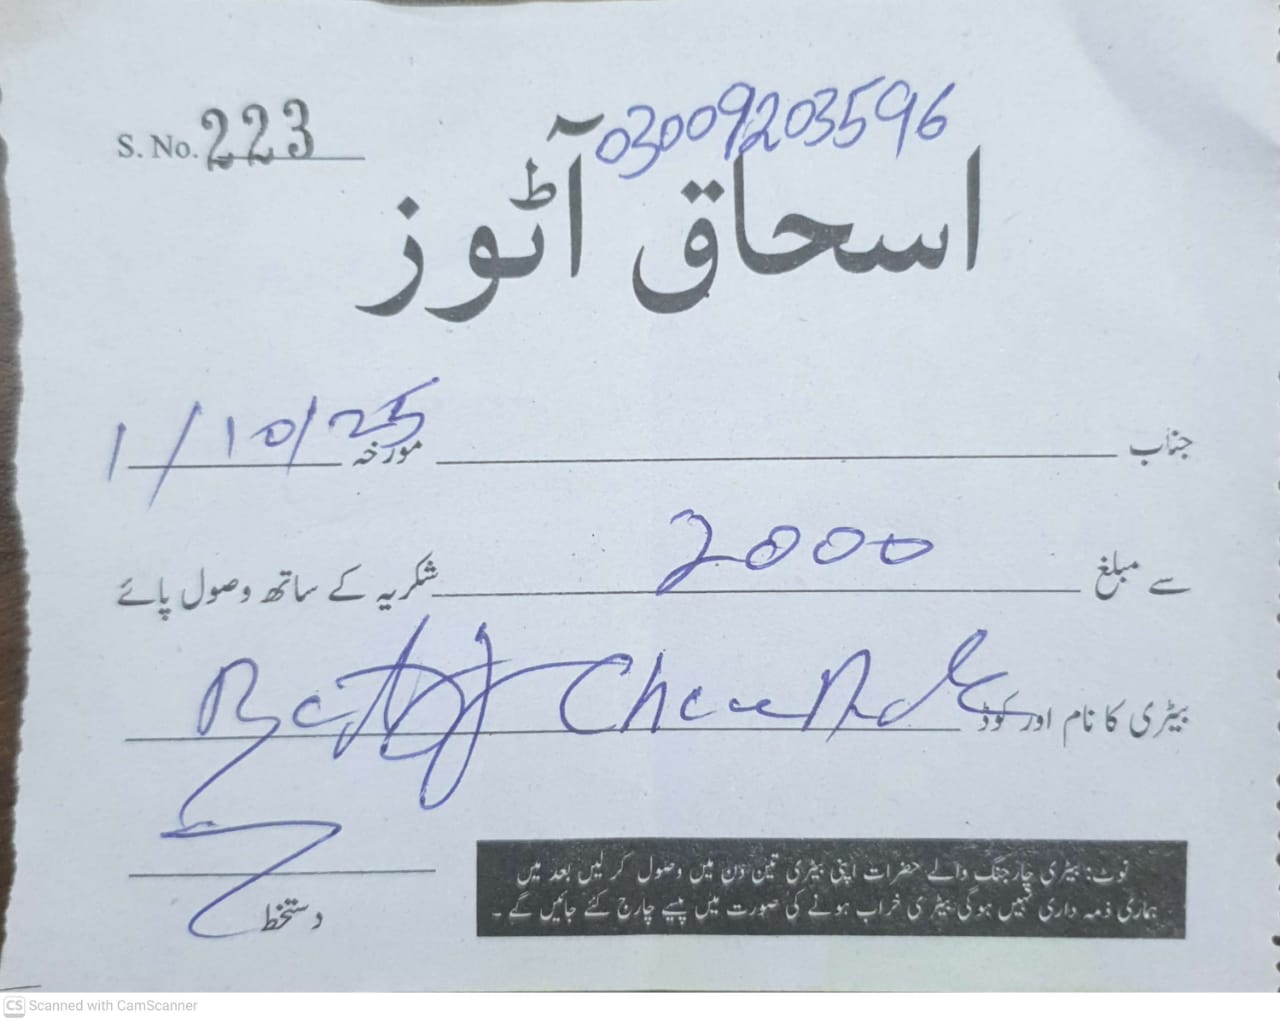 S. No. 223
03009203596
اسحاق آٹوز
جناب مورخہ 1/10/25
سے مبلغ 2000 شکریہ کے ساتھ وصول پائے
بیٹری کا نام اور کوڈ
دستخط
نوٹ: بیٹری چارجنگ والے حضرات اپنی بیٹری تین دن میں وصول کر لیں بعد میں
ہماری ذمہ داری نہیں ہوگی بیٹری خراب ہونے کی صورت میں پیسے چارج کئے جائیں گے ۔
CS Scanned with CamScanner